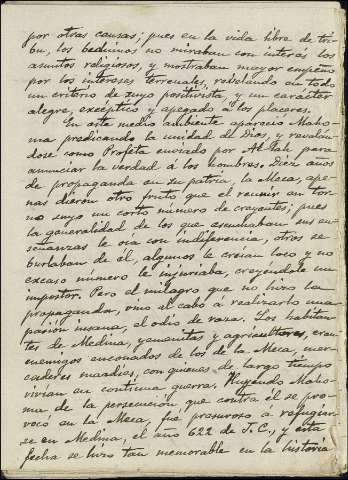 por otras causas; pues en la vida libre de tri-
bu, los beduinos no miraban con interés los
asuntos religiosos, y mostraban mayor empeño
por los intereses terrenales, revelando en todo
un criterio de suyo positivista y un carácter
alegre, excéptico y apegado a los placeres.
En este medio ambiente apareció Maho-
ma predicando la unidad de Dios, y revelán-
dose como Profeta enviado por Al-lah para
anunciar la verdad á los hombres. Diez años
de propaganda en su patria, la Meca, ape-
nas dieron otro fruto que el reunir en tor-
no suyo un corto número de creyentes; pues
la generalidad de los que escuchaban sus en-
señanzas le oía con indiferencia, otros se
burlaban de él, algunos le creían loco y no
escaso número le injuriaba, creyéndole un
impostor. Pero el milagro que no hizo la
propaganda, vino al cabo á realizarlo una
pasión insana, el odio de raza. Los habitan-
tes de Medina, yemenitas y agricultores, eran
enemigos enconados de los de la Meca, mer-
caderes maadíes, con quienes de largo tiempo
vivían en continua guerra. Huyendo Maho-
ma de la persecución que contra él se pro-
vocó en la Meca, fué presuroso á refugiar-
se en Medina, el año 622 de J.C., y esta
fecha se hizo tan memorable en la historia